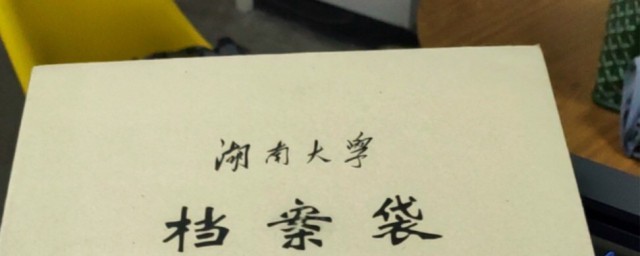 湖南大學
档案袋